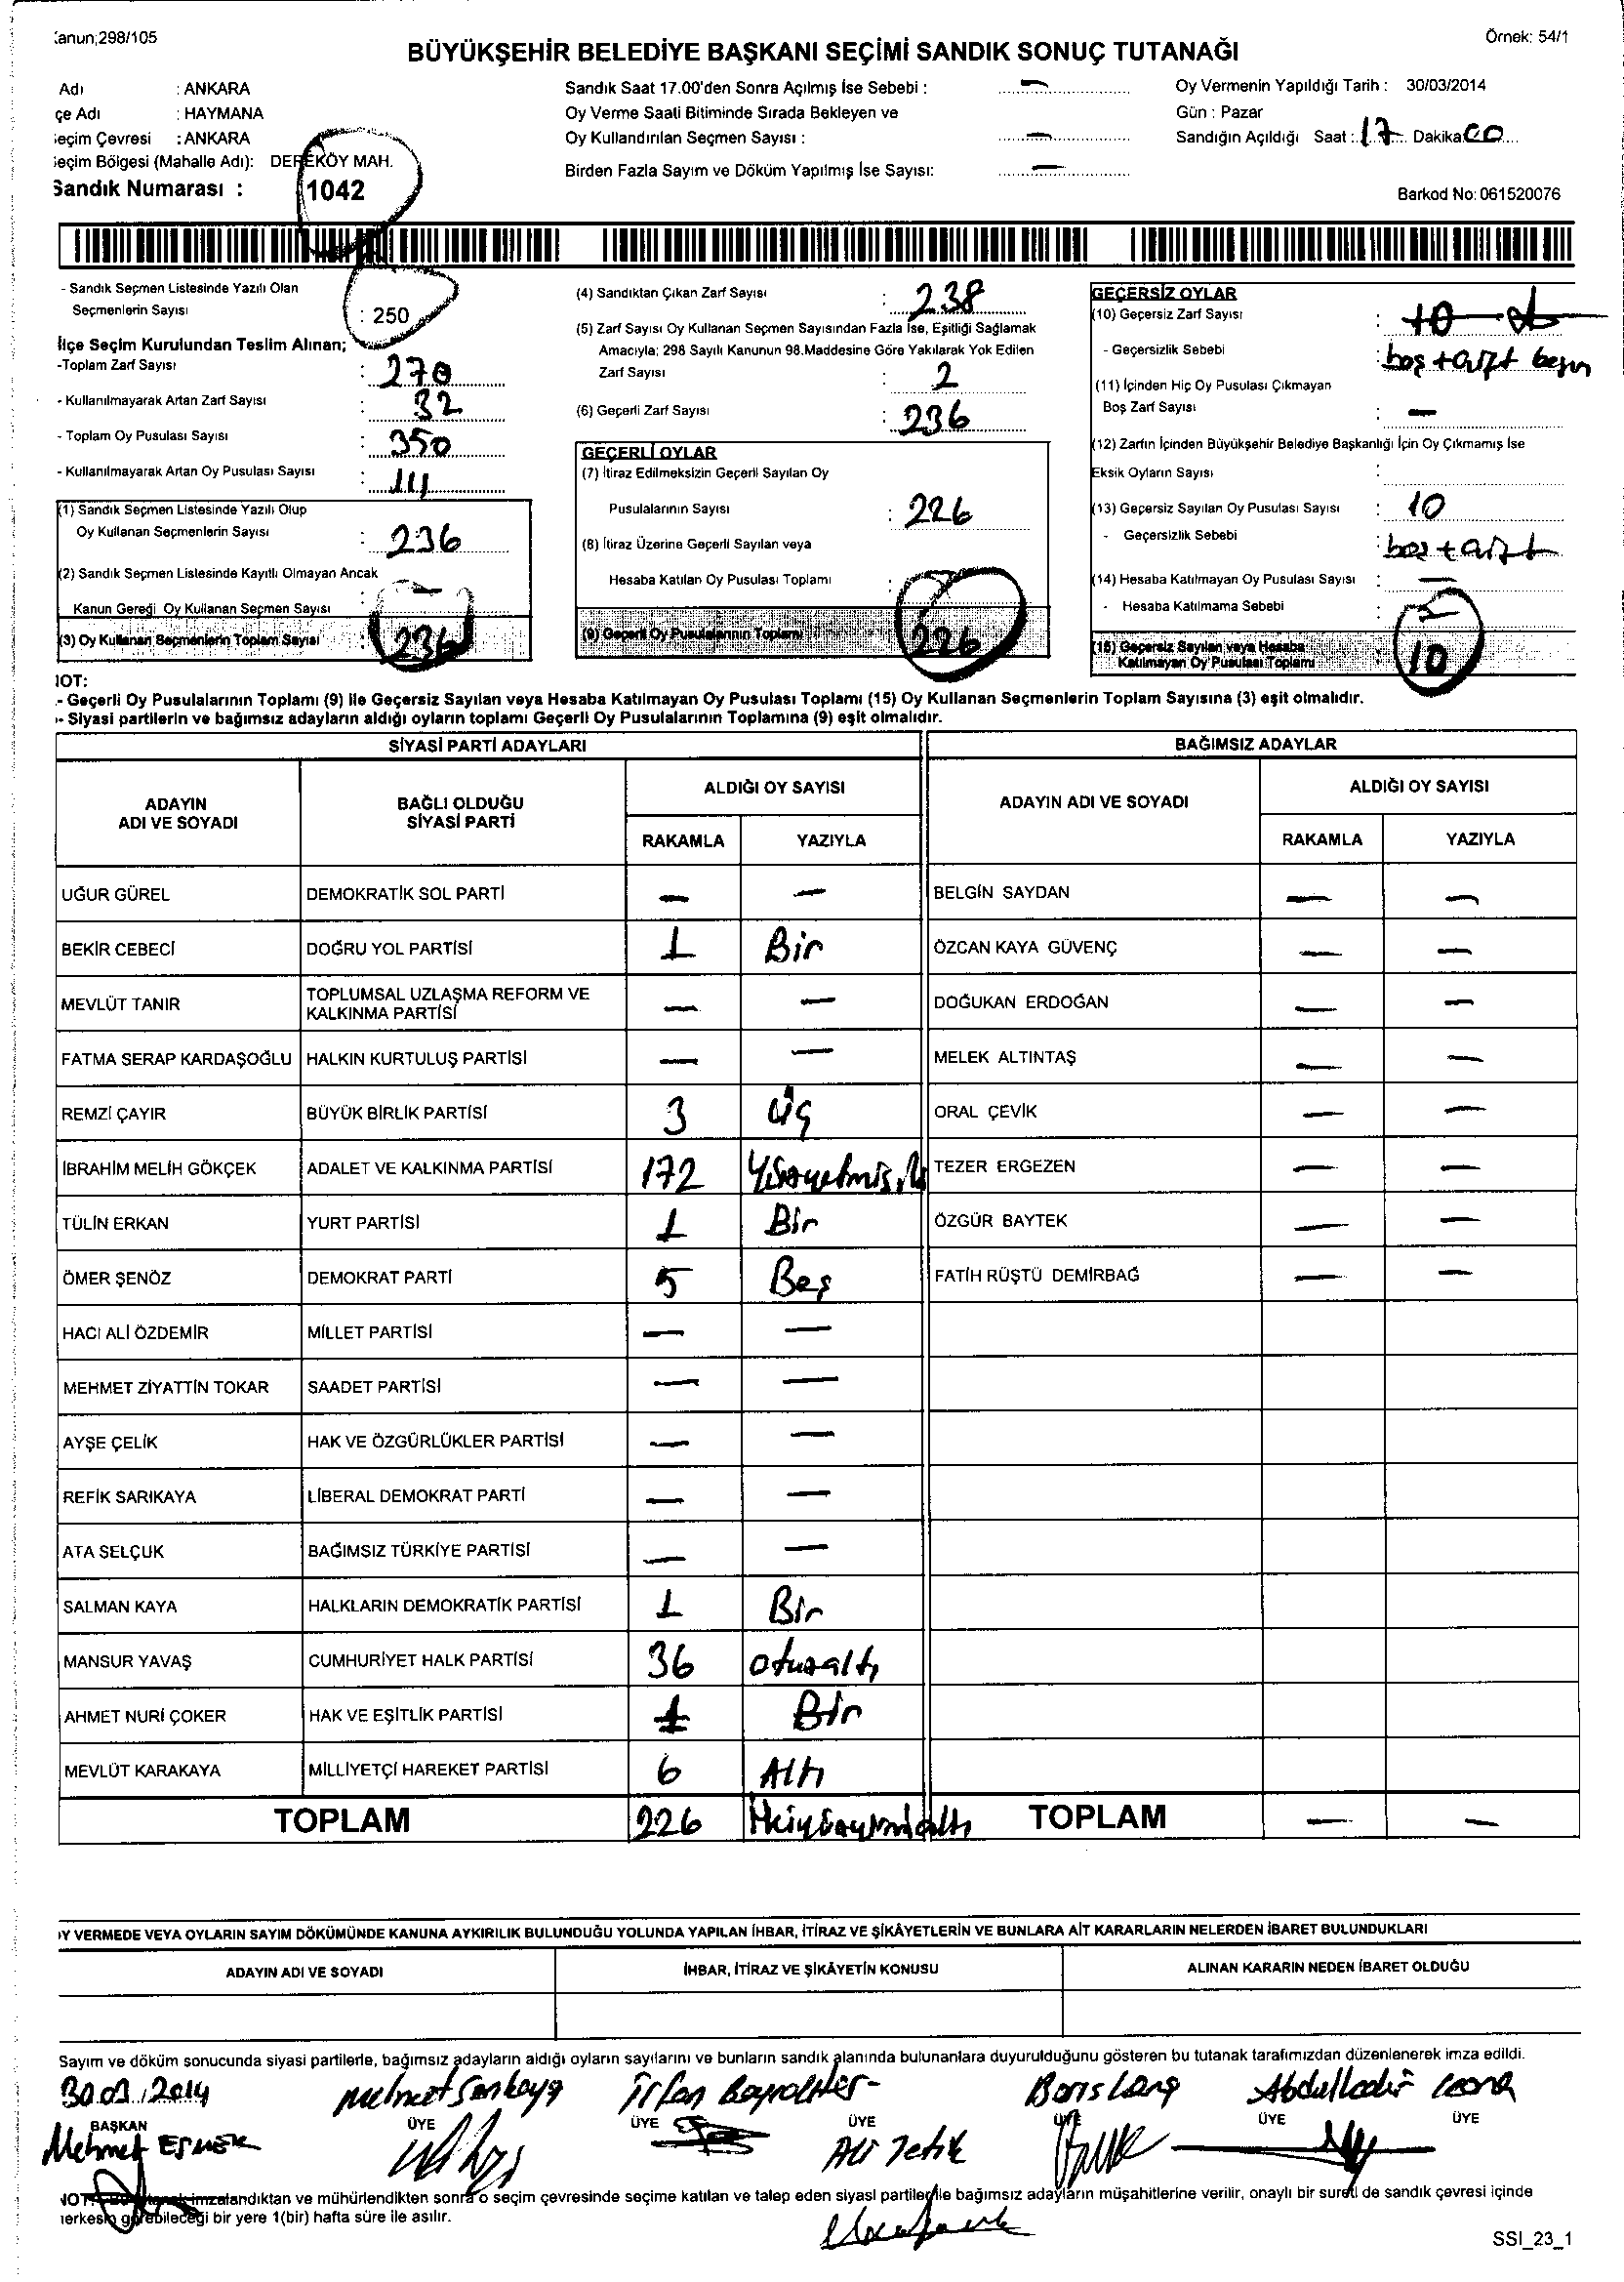 anun;298/105
Örnek: 54/1
BÜYÜKŞEHİR BELEDİYE BAŞKANI SEÇİMİ SANDIK SONUÇ TUTANAĞI
Adı : ANKARA
çe Adı : HAYMANA
eçim Çevresi : ANKARA
eçim Bölgesi (Mahalle Adı): DEREKÖY MAH.
Sandık Numarası : 1042
Sandık Saat 17.00'den Sonra Açılmış İse Sebebi : —
Oy Verme Saati Bitiminde Sırada Bekleyen ve
Oy Kullandırılan Seçmen Sayısı : —
Birden Fazla Sayım ve Döküm Yapılmış İse Sayısı: —
Oy Vermenin Yapıldığı Tarih : 30/03/2014
Gün : Pazar
Sandığın Açıldığı Saat : 17 Dakika 00
Barkod No: 061520076
- Sandık Seçmen Listesinde Yazılı Olan
Seçmenlerin Sayısı : 250
İlçe Seçim Kurulundan Teslim Alınan;
-Toplam Zarf Sayısı : 270
- Kullanılmayarak Artan Zarf Sayısı : 32
- Toplam Oy Pusulası Sayısı : 350
- Kullanılmayarak Artan Oy Pusulası Sayısı : 111
(1) Sandık Seçmen Listesinde Yazılı Olup
Oy Kullanan Seçmenlerin Sayısı : 236
(2) Sandık Seçmen Listesinde Kayıtlı Olmayan Ancak
Kanun Gereği Oy Kullanan Seçmen Sayısı : —
(3) Oy Kullanan Seçmenlerin Toplam Sayısı : 236
(4) Sandıktan Çıkan Zarf Sayısı : 238
(5) Zarf Sayısı Oy Kullanan Seçmen Sayısından Fazla İse, Eşitliği Sağlamak
Amacıyla; 298 Sayılı Kanunun 98.Maddesine Göre Yakılarak Yok Edilen
Zarf Sayısı : 2
(6) Geçerli Zarf Sayısı : 236
GEÇERLİ OYLAR
(7) İtiraz Edilmeksizin Geçerli Sayılan Oy
Pusulalarının Sayısı : 226
(8) İtiraz Üzerine Geçerli Sayılan veya
Hesaba Katılan Oy Pusulası Toplamı : —
(9) Geçerli Oy Pusulalarının Toplamı : 226
GEÇERSİZ OYLAR
(10) Geçersiz Zarf Sayısı : 10
- Geçersizlik Sebebi : boş + çift
(11) İçinden Hiç Oy Pusulası Çıkmayan
Boş Zarf Sayısı : —
(12) Zarfın İçinden Büyükşehir Belediye Başkanlığı İçin Oy Çıkmamış İse
Eksik Oyların Sayısı :
(13) Geçersiz Sayılan Oy Pusulası Sayısı : 10
- Geçersizlik Sebebi : boş + çift
(14) Hesaba Katılmayan Oy Pusulası Sayısı : —
- Hesaba Katılmama Sebebi : —
(15) Geçersiz Sayılan veya Hesaba
Katılmayan Oy Pusulası Toplamı : 10
NOT:
- Geçerli Oy Pusulalarının Toplamı (9) ile Geçersiz Sayılan veya Hesaba Katılmayan Oy Pusulası Toplamı (15) Oy Kullanan Seçmenlerin Toplam Sayısına (3) eşit olmalıdır.
- Siyasi partilerin ve bağımsız adayların aldığı oyların toplamı Geçerli Oy Pusulalarının Toplamına (9) eşit olmalıdır.
SİYASİ PARTİ ADAYLARI BAĞIMSIZ ADAYLAR
ADAYIN ADI VE SOYADI BAĞLI OLDUĞU SİYASİ PARTİ ALDIĞI OY SAYISI RAKAMLA YAZIYLA ADAYIN ADI VE SOYADI ALDIĞI OY SAYISI RAKAMLA YAZIYLA
UĞUR GÜREL DEMOKRATİK SOL PARTİ — — BELGİN SAYDAN — —
BEKİR CEBECİ DOĞRU YOL PARTİSİ 1 Bir ÖZCAN KAYA GÜVENÇ — —
MEVLÜT TANIR TOPLUMSAL UZLAŞMA REFORM VE KALKINMA PARTİSİ — — DOĞUKAN ERDOĞAN — —
FATMA SERAP KARDAŞOĞLU HALKIN KURTULUŞ PARTİSİ — — MELEK ALTINTAŞ — —
REMZİ ÇAYIR BÜYÜK BİRLİK PARTİSİ 3 Üç ORAL ÇEVİK — —
İBRAHİM MELİH GÖKÇEK ADALET VE KALKINMA PARTİSİ 172 TEZER ERGEZEN — —
TÜLİN ERKAN YURT PARTİSİ 1 Bir ÖZGÜR BAYTEK — —
ÖMER ŞENÖZ DEMOKRAT PARTİ 5 Beş FATİH RÜŞTÜ DEMİRBAĞ — —
HACI ALİ ÖZDEMİR MİLLET PARTİSİ — —
MEHMET ZİYATTİN TOKAR SAADET PARTİSİ — —
AYŞE ÇELİK HAK VE ÖZGÜRLÜKLER PARTİSİ — —
REFİK SARIKAYA LİBERAL DEMOKRAT PARTİ — —
ATA SELÇUK BAĞIMSIZ TÜRKİYE PARTİSİ — —
SALMAN KAYA HALKLARIN DEMOKRATİK PARTİSİ 1 Bir
MANSUR YAVAŞ CUMHURİYET HALK PARTİSİ 36 otuzaltı
AHMET NURİ ÇOKER HAK VE EŞİTLİK PARTİSİ 1 Bir
MEVLÜT KARAKAYA MİLLİYETÇİ HAREKET PARTİSİ 6 Altı
TOPLAM 226 TOPLAM — —
Y VERMEDE VEYA OYLARIN SAYIM DÖKÜMÜNDE KANUNA AYKIRILIK BULUNDUĞU YOLUNDA YAPILAN İHBAR, İTİRAZ VE ŞİKÂYETLERİN VE BUNLARA AİT KARARLARIN NELERDEN İBARET BULUNDUKLARI
ADAYIN ADI VE SOYADI İHBAR, İTİRAZ VE ŞİKÂYETİN KONUSU ALINAN KARARIN NEDEN İBARET OLDUĞU
Sayım ve döküm sonucunda siyasi partilerle, bağımsız adayların aldığı oyların sayılarını ve bunların sandık alanında bulunanlara duyurulduğunu gösteren bu tutanak tarafımızdan düzenlenerek imza edildi.
30.03.2014 Mehmet İrfan Abdulkadir
BAŞKAN ÜYE ÜYE ÜYE ÜYE ÜYE ÜYE
Mehmet Ali Tetik
NOT: Bu tutanak imzalandıktan ve mühürlendikten sonra o seçim çevresinde seçime katılan ve talep eden siyasi partiler ile bağımsız adayların müşahitlerine verilir, onaylı bir sureti de sandık çevresi içinde
herkesin görebileceği bir yere 1(bir) hafta süre ile asılır.
SSI_23_1